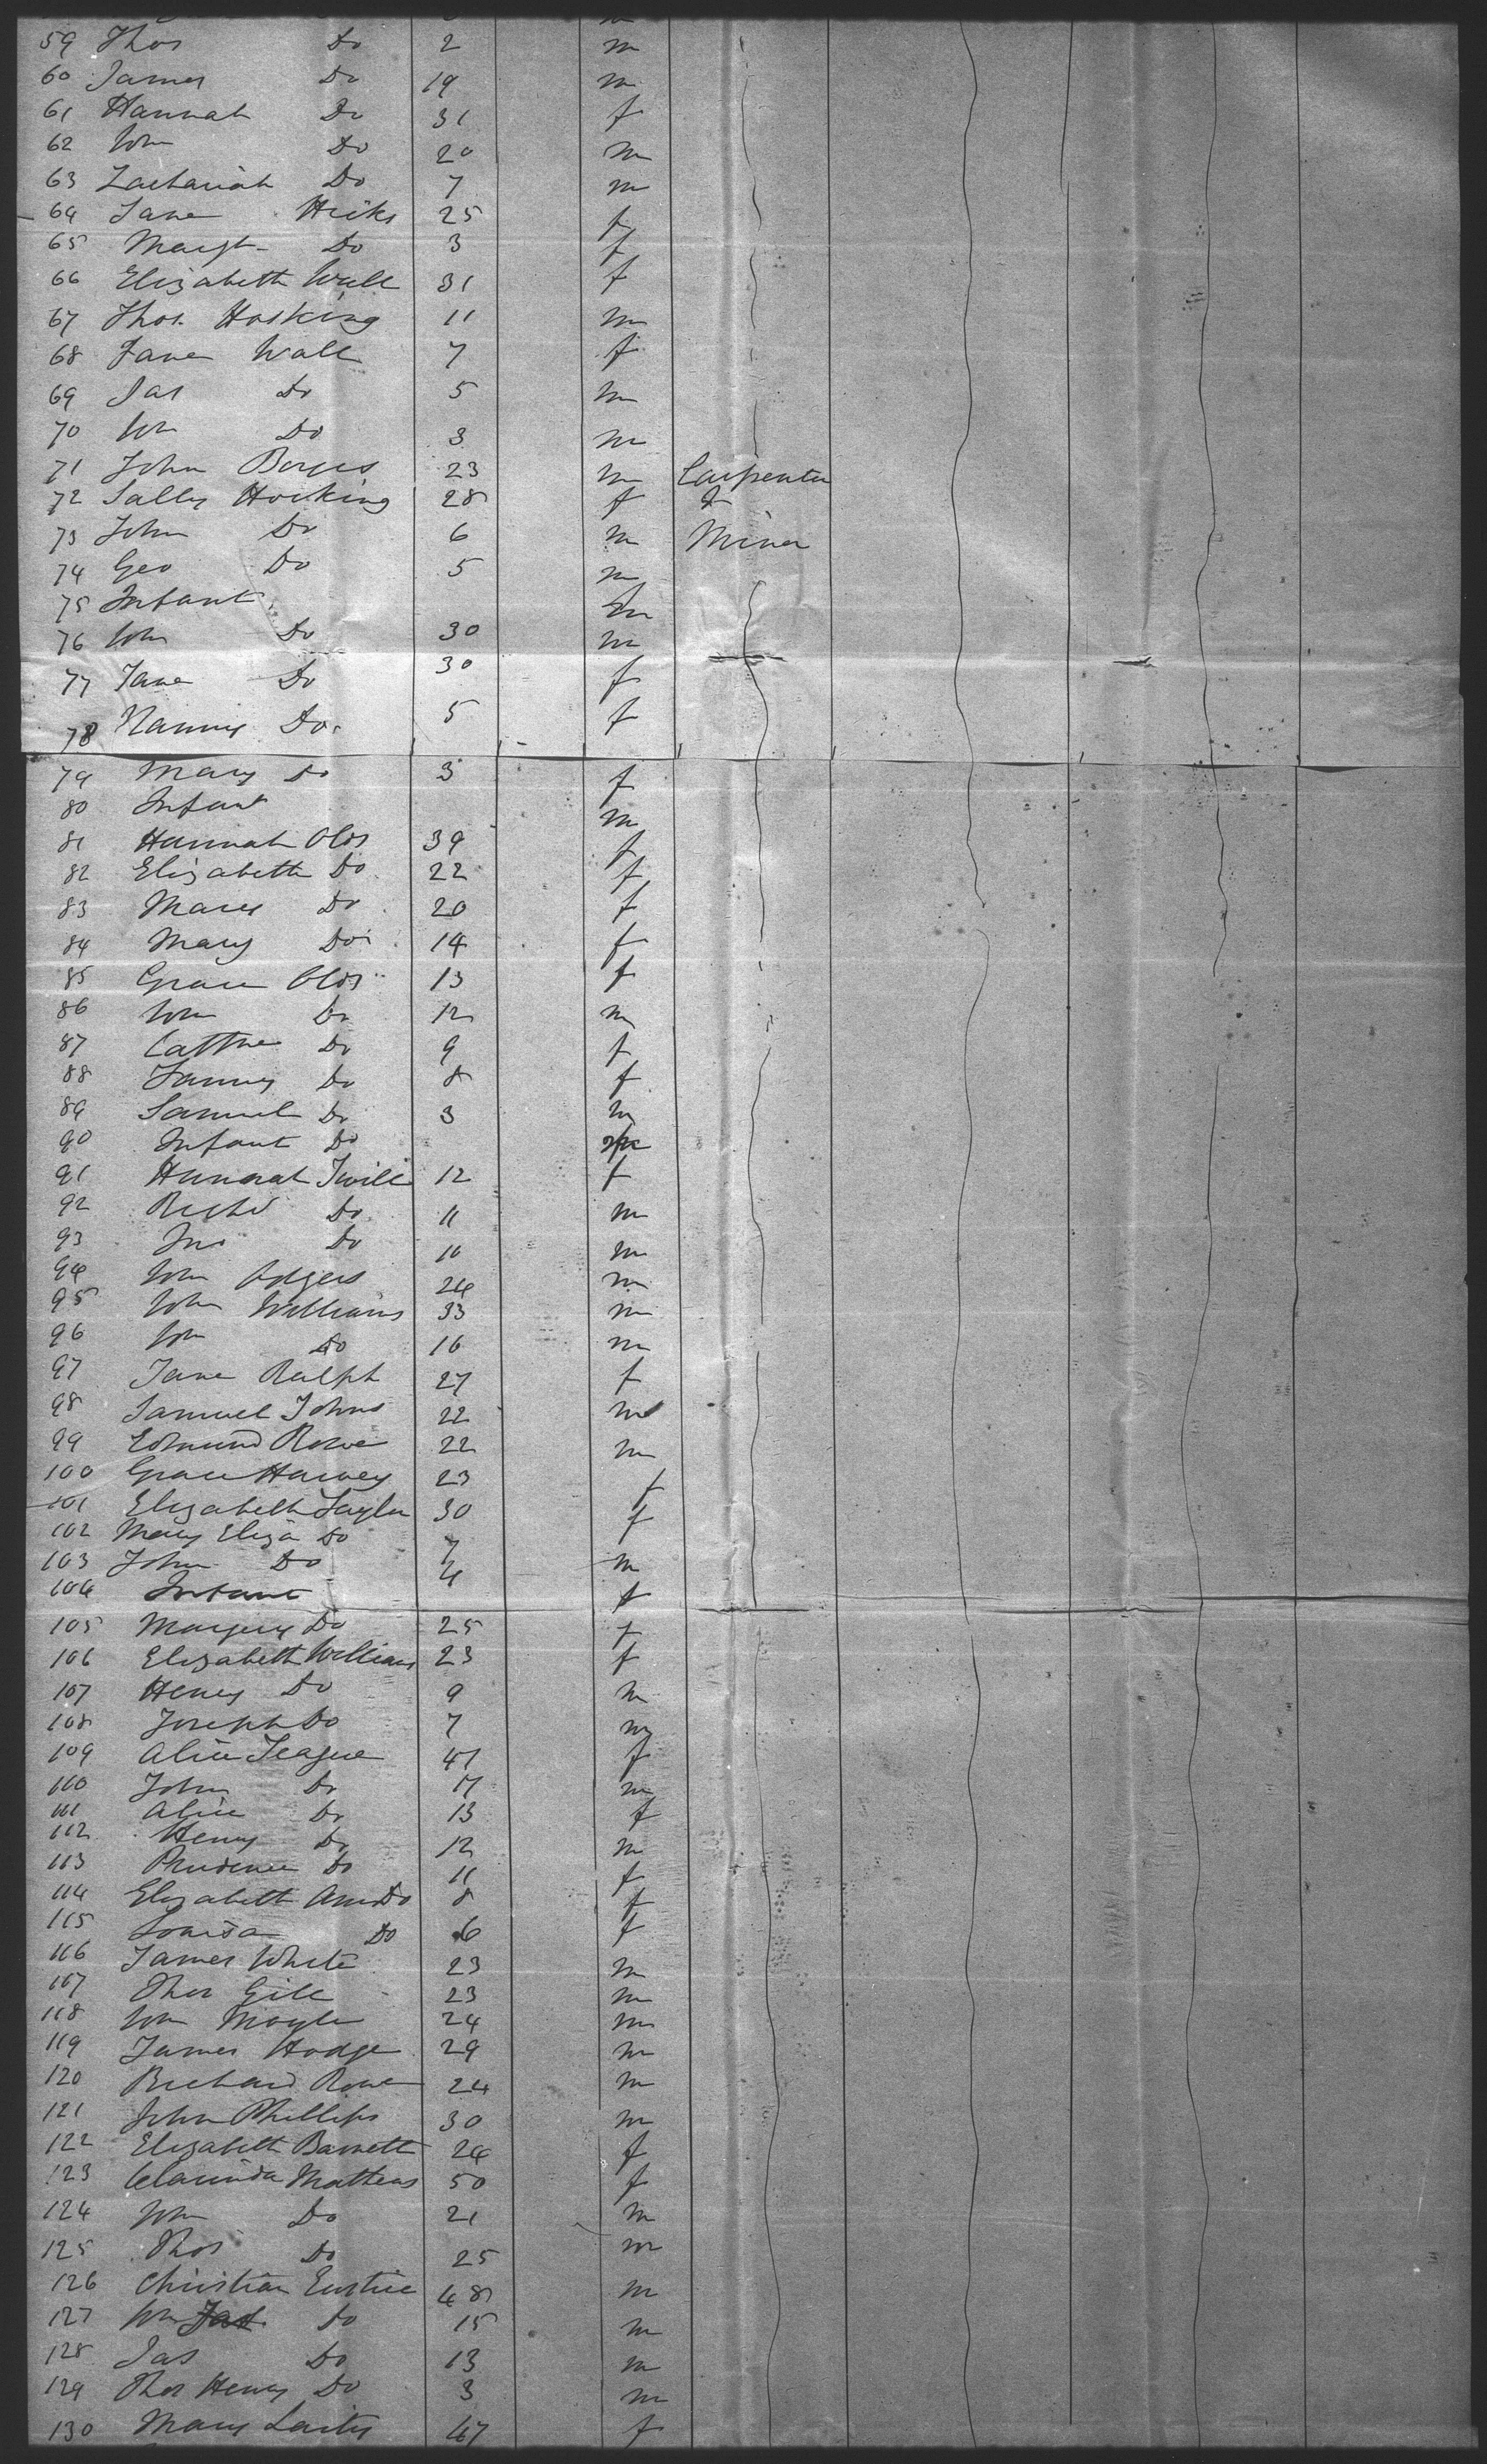 59 Thos Do 2 m
60 James Do 19 m
61 Hannah Do 31 f
62 Wm Do 20 m
63 Zachariah Do 7 m
64 Jane Hicks 25 f
65 Margt Do 3 f
66 Elizabeth Wall 31 f
67 Thos Hosking 11 m
68 Jane Wall 7 f
69 Jas Do 5 m
70 Wm Do 3 m
71 John 23 m Carpenter
72 Sally Hocking 28 f
73 John Do 6 m Miner
74 Geo Do 5 m
75 Infant m
76 Wm Do 30 m
77 Jane Do 30 f
78 Nanny Do 5 f
79 Mary Do 3 f
80 Infant m
81 Hannah Olds 39 f
82 Elizabeth Do 22 f
83 Mary Do 20 f
84 Mary Do 14 f
85 Grace Olds 13 f
86 Wm Do 12 m
87 Cathne Do 9 f
88 Fanny Do 8 f
89 Samuel Do 3 m
90 Infant Do
91 Hannah 12 f
92 Richd Do 11 m
93 Jno Do 10 m
94 Wm Odgers 24 m
95 John Williams 33 m
96 Wm Do 16 m
97 Jane Ralph 27 f
98 Samuel Johns 22 m
99 Edmund Rowe 22 m
100 Grace Harvey 23 f
101 Elizabeth Taylor 30 f
102 Mary Eliza Do 7
103 John Do 4 m
104 Infant f
105 Margery Do 25 f
106 Elizabeth Williams 23 f
107 Henry Do 9 m
108 Joseph Do 7 m
109 Alice Teague 41 f
110 John Do 17 m
111 Alice Do 13 f
112 Henry Do 12 m
113 Prudence Do 11 f
114 Elizabeth Ann Do 8 f
115 Louisa Do 6 f
116 James White 23 m
117 Thos Gill 23 m
118 Wm Moyle 24 m
119 James Hodge 29 m
120 Richard Rowe 24 m
121 John Phillips 30 m
122 Elizabeth Barnett 24 f
123 Clarinda Mathews 50 f
124 Wm Do 21 m
125 Thos Do 25 m
126 Christian Eustice 48 m
127 Wm Do 15 m
128 Jas Do 13 m
129 Thos Henry Do 3 m
130 Mary 47 f